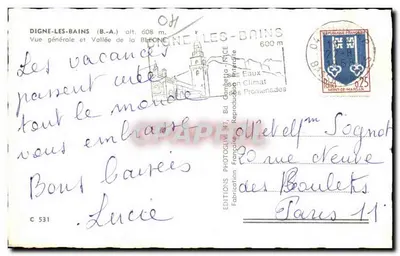 DIGNE-LES-BAINS (B.-A.) alt. 608 m.
Vue générale et Vallée de la BLÉONE
Les vacances
passent vite
tout le monde
vous embrasse
Bons baisers
Lucie
C 931
DIGNE-LES-BAINS
600 m
Ses Eaux
Son Climat
Ses Promenades
EDITIONS
Fabrication Française - Reproduction Interdite
REPUBLIQUE FRANCAISE
0,25
MONT-DE-MARSAN
CPAPHIL
M et Mme Sognot
20 rue Neuve
des Boulets
Paris 11